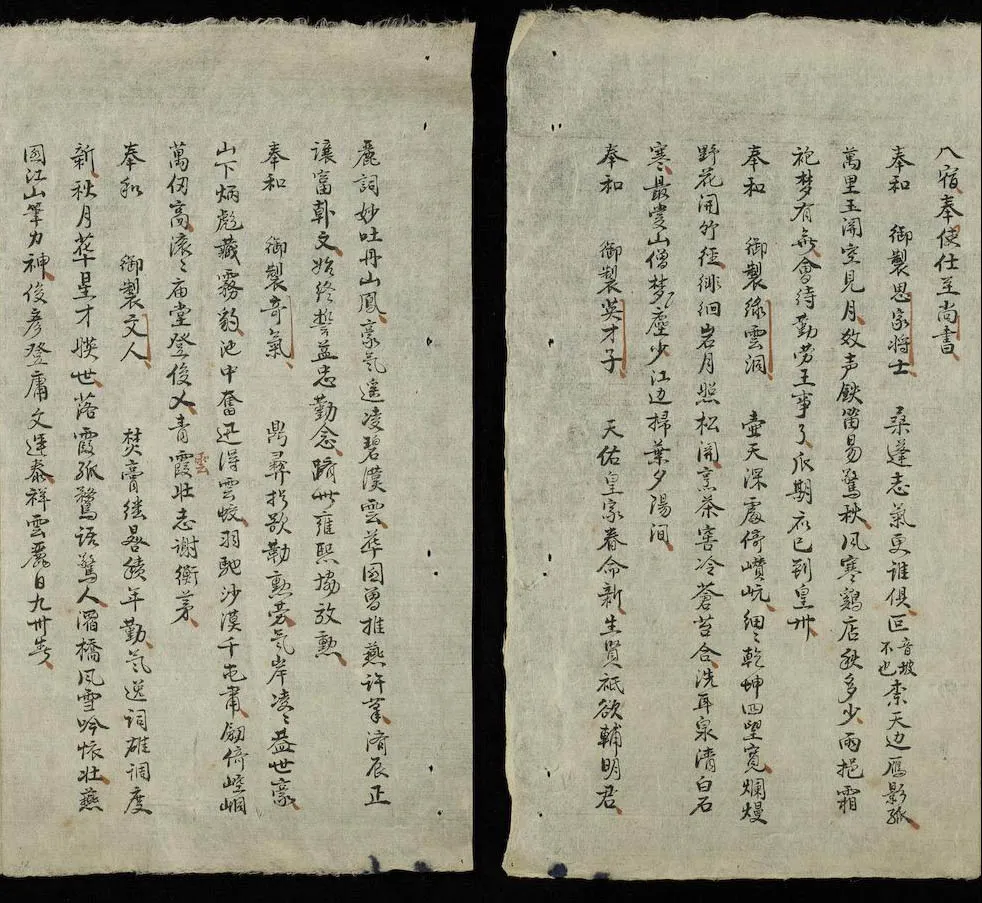 入宿奉使仕至尚書
奉和 御製思家将士 桑蓬志氣更誰俱叵音坡不也柰天边鴈影孤
萬里玉関空見月数声鉄笛易驚秋风寒鷄店秋多少雨挹霜
袍梦有無會待勤劳王事了爪期衣已到皇州
奉和 御製緑雲洞 壷天深處倚巑岏細〻乾坤四望寛爛熳
野花開竹徑徘徊岩月照松関烹茶窖冷蒼苔合洗耳泉清白石
寒最爱山僧梦塵少江边掃葉夕陽间
奉和 御製英才子 天佑皇家眷命新生賢祇欲輔明君
麗詞妙吐丹山鳳豪氣遙凌碧漢雲華國曽推燕许筆濟辰正
讓富韩文始終誓益忠勤念躋世雍熙協放勲
奉和 御製奇氣 鼎彛拟欲勒勲劳气岸凌〻盖世豪
山下炳彪藏霧豹池中奮迅得雲蛟羽馳沙漠千屯肃劔倚崆峒
萬仞高滚〻庙堂登俊乂青霞壮志謝衡茅
雲
奉和 御製文人 焚膏继晷積年勤气逸词雄调度
新秋月華星才㬓世落霞孤鶩话驚人灞橋风雪吟懷壮燕
國江山筆力神俊彦登庸文運泰祥雲麗日九州春